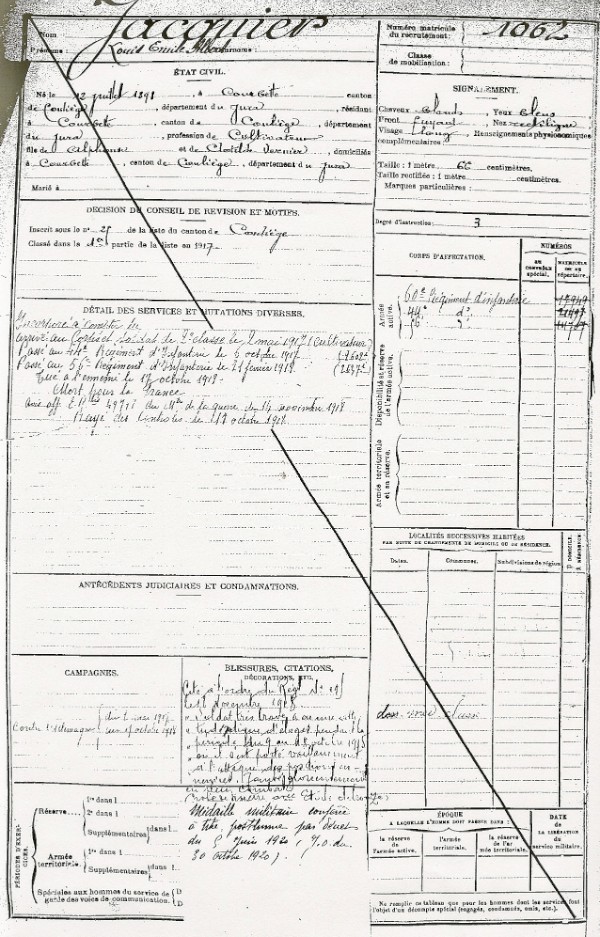 Nom Jacquier
Prénoms : Louis Emile Surnoms :
Numéro matricule du recrutement : 1062
Classe de mobilisation :
ÉTAT CIVIL.
Né le 12 juillet 1898, à Courbete canton
de Conliège, département du Jura, résidant
à Courbete, canton de Conliège, département
du Jura, profession de Cultivateur
fils de Alphonse et de Clotilde Vernier, domiciliés
à Courbete, canton de Conliège, département du Jura
Marié à
SIGNALEMENT.
Cheveux blonds Yeux bleus
Front fuyant Nez rectiligne
Visage long Renseignements physionomiques
complémentaires :
Taille : 1 mètre 66 centimètres.
Taille rectifiée : 1 mètre centimètres.
Marques particulières :
DÉCISION DU CONSEIL DE REVISION ET MOTIFS.
Inscrit sous le n° 25 de la liste du canton de Conliège
Classé dans la 1re partie de la liste en 1917
Degré d'instruction : 3
CORPS D'AFFECTATION.
NUMÉROS
au contrôle spécial.
matricule ou au répertoire.
Armée active.
60e Régiment d'infanterie
44e do
56 do
Disponibilité et réserve de l'armée active.
Armée territoriale et sa réserve.
DÉTAIL DES SERVICES ET MUTATIONS DIVERSES.
Incorporé à compter du
arrivé au Corps et soldat de 2e classe le 2 mai 1917 (cultivateur)
Passé au 44e Régiment d'Infanterie le 6 octobre 1917
Passé au 56e Régiment d'Infanterie le 21 février 1918
Tué à l'ennemi le 17 octobre 1918
Mort pour la France
Mre de la guerre du 14 novembre 1918
Rayé des Contrôles le 17 octobre 1918
LOCALITÉS SUCCESSIVES HABITÉES
PAR SUITE DE CHANGEMENTS DE DOMICILE OU DE RÉSIDENCE.
Dates.
Communes.
Subdivisions de région
D. DOMICILE.
R. RÉSIDENCE.
ANTÉCÉDENTS JUDICIAIRES ET CONDAMNATIONS.
CAMPAGNES.
Contre l'Allemagne
du 2 mai 1917
au 17 octobre 1918
BLESSURES, CITATIONS,
DÉCORATIONS, ETC.
Cité à l'ordre du Régt No
décembre 1918
soldat très brave
d'éloges pendant la
période du 9 au octobre 1918
où il s'est porté vaillamment
à l'attaque des positions
en plein combat
Croix de guerre avec Etoile de bronze
Médaille militaire conférée
à titre posthume par décret
du 5 Juin 1920 (J.O. du
30 octobre 1920)
PÉRIODES D'EXERCICES.
Réserve
1re dans l
2e dans l
Supplémentaires dans l
Armée territoriale.
1re dans l
Supplémentaires dans l
Spéciales aux hommes du service de garde des voies de communication.
D
D
ÉPOQUE
À LAQUELLE L'HOMME DOIT PASSER DANS :
la réserve de l'armée active.
l'armée territoriale.
la réserve de l'armée territoriale.
DATE
de la LIBÉRATION du service militaire.
Ne remplir ce tableau que pour les hommes dont les services font
l'objet d'un décompte spécial (engagés, condamnés, omis, etc.).